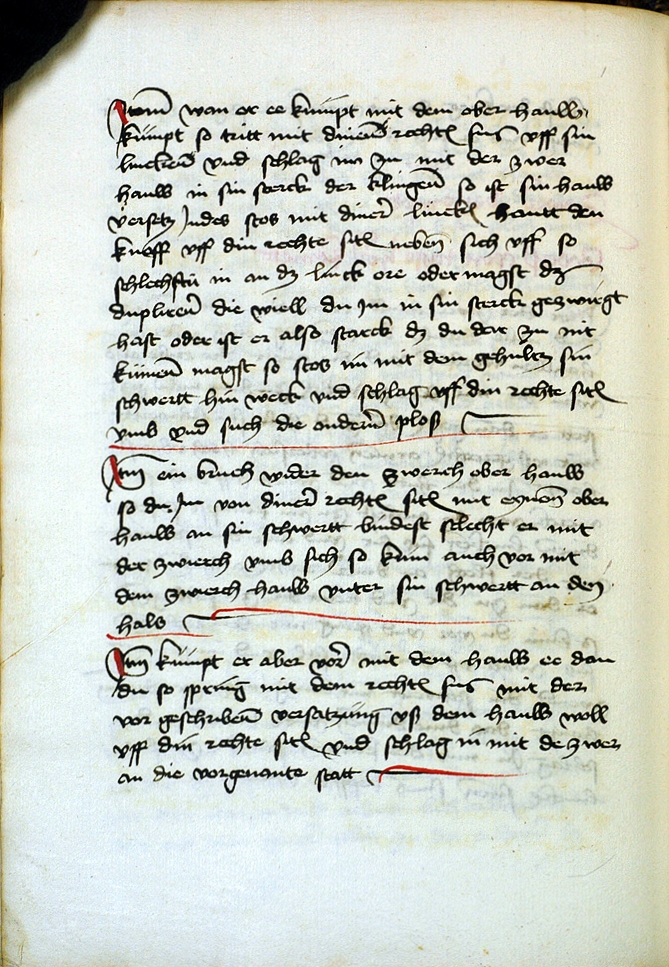 Item wan er ee kumpt mit dem ober hauw
kumpt so tritt mit dinem rechten fus vff sin
lincken vnd schlag im In mit der zwer
hauw in sin sterck der klingen so ist sin hauw
versetz Indes stos mit diner lincken hantt den
knoff vff din rechte siten neben sich vff so
schlechstu in an dz linck ore oder magst dz
dupliren die wiell du Im in sin sterck gezwirgt
hast oder ist er also starck dz du dar zu nit
kumen magst so stos im mit dem gehultz sin
schwertt hin weck vnd schlag vff din rechte siten
vmb vnd such die andern plos
Itm ein bruch wider den zwerch ober hauw
so du Im von diner rechten siten mit eynem ober
hauw an sin schwertt bindest slecht er mit
der zwierch vmb sich so kum auch vor mit
dem zwerch hauw vnter sin schwertt an den
hals
Itm kumpt er aber vor mit dem hauw ee dan
du so spring mit dem rechten fus mit der
vor geschriben versatzung vß dem hauw woll
vff din rechte siten vnd schlag in mit de zwer
an die vorgenante statt